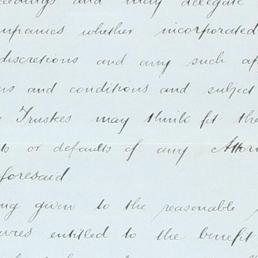 and may delegate
mpanies whether incorporated
discretions and any such
ns and conditions and subject
Trustees may think fit the
ts or defaults of any Attor
foresaid
ng given to the reasonable
ures entitled to the benefit